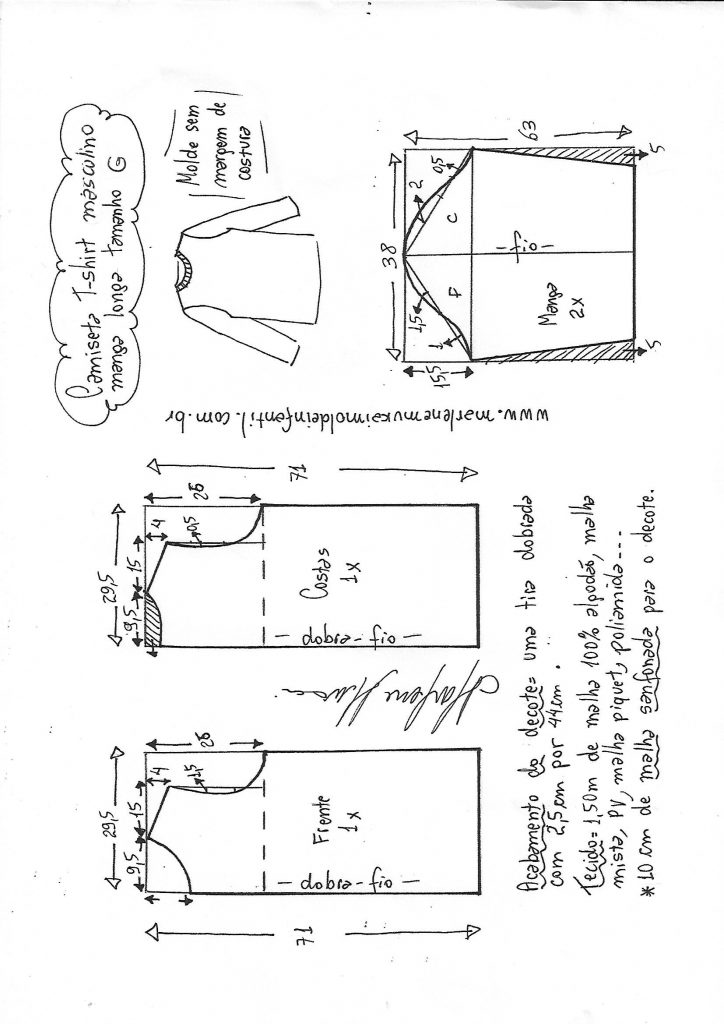 Camiseta T-shirt masculino
manga longa tamanho G
Molde sem
margem de
costura
www.marlenemukaimoldeinfantil.com.br
29,5
9,5
15
4
26
1,5
71
Frente
1x
dobra-fio
29,5
9,5
15
4
26
0,5
71
Costas
1x
dobra-fio
38
15,5
63
1
1,5
2
0,5
F
C
fio
Manga
2x
5
5
Acabamento do decote= uma tira dobrada
com 2,5cm por 44cm.
Tecido= 1,50m de malha 100% algodão, malha
mista, PV, malha piquet, poliamida...
* 10 cm de malha sanfonada para o decote.